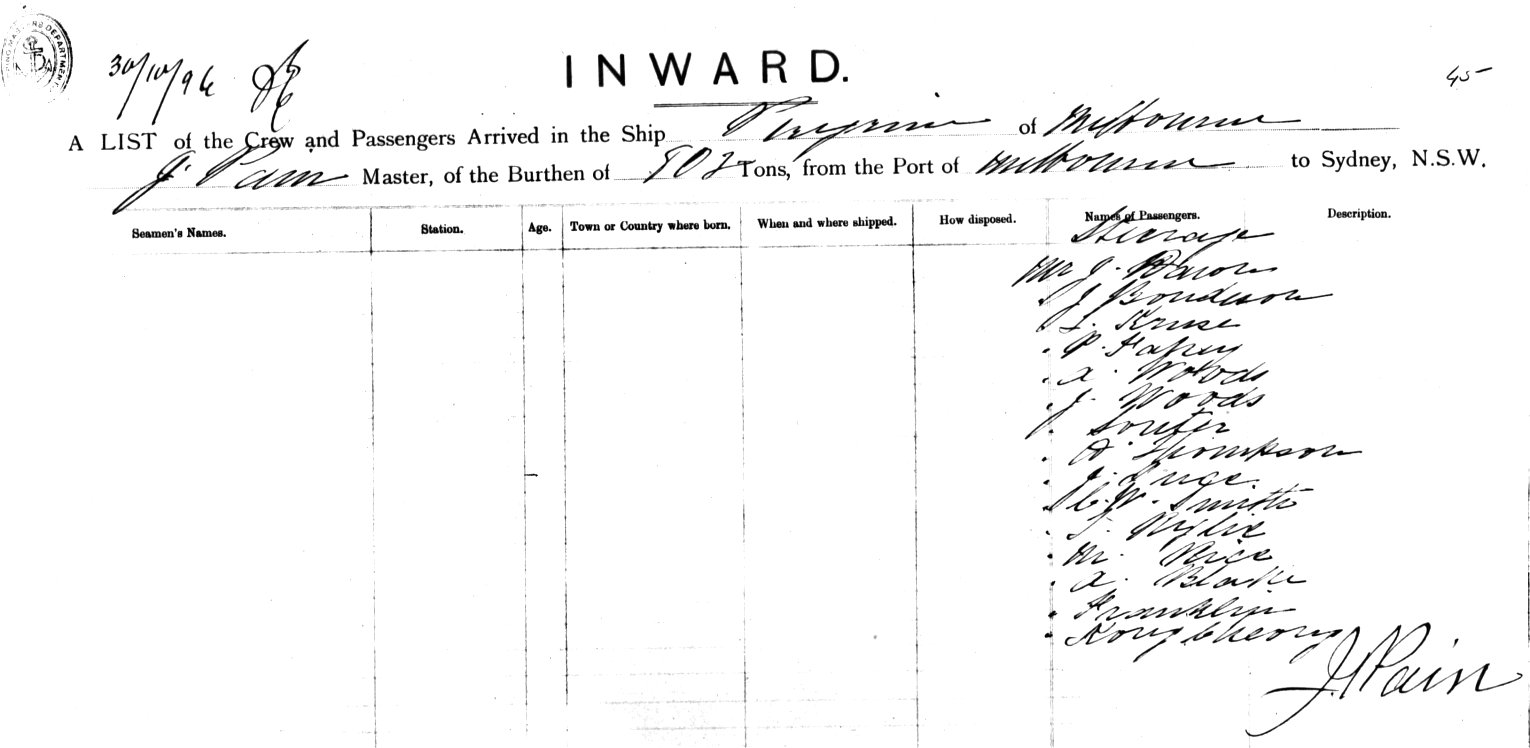 30/10/96
45
INWARD.
A LIST of the Crew and Passengers Arrived in the Ship Peregrine of Melbourne
J. Pain Master, of the Burthen of Tons, from the Port of Melbourne to Sydney, N.S.W.
Seamen's Names. Station. Age. Town or Country where born. When and where shipped. How disposed. Names of Passengers. Description.
Steerage
Mr J.
J Bondeson
Kruse
P.
A. Woods
J. Woods
Souter
Thompson
J.
C. W. Smith
Wylie
M. Rice
A. Blake
Franklin
Kong Cheong
J. Pain